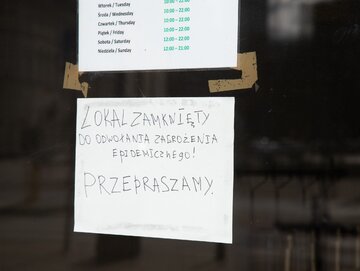 Wtorek / Tuesday 10:00 – 22:00
Środa / Wednesday 10:00 – 22:00
Czwartek / Thursday 10:00 – 22:00
Piątek / Friday 10:00 – 22:00
Sobota / Saturday 12:00 – 22:00
Niedziela / Sunday 12:00 – 21:00
LOKAL ZAMKNIĘTY
DO ODWOŁANIA ZAGROŻENIA
EPIDEMICZNEGO!
PRZEPRASZAMY.